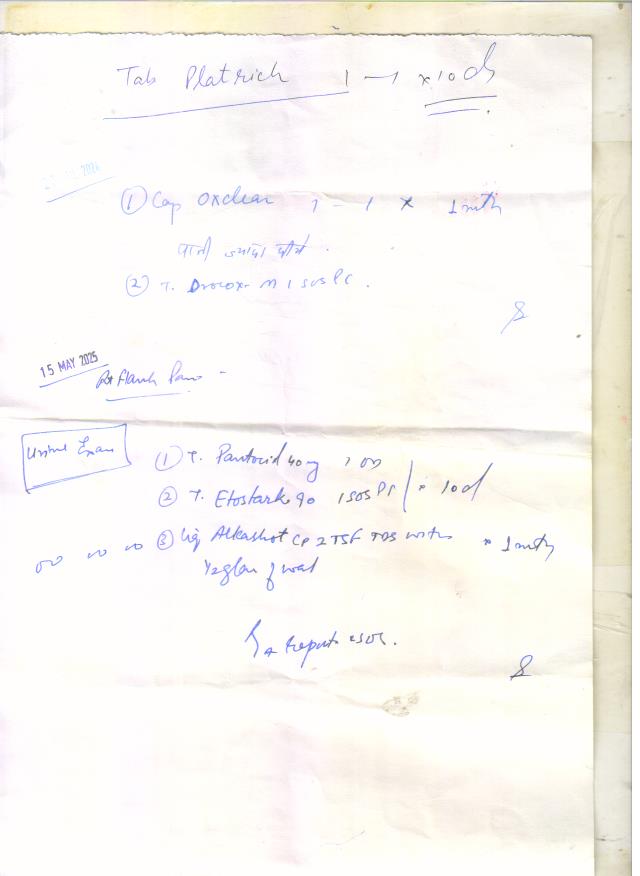 Tab Platrich 1 – 1 x 10 d
2024
① Cap Oxclear 1 – 1 x 1 mth
पानी ज्यादा पीयें .
② T. M 1 SOS PC .
15 MAY 2025
Flank Pain -
Urine Exam
① T. Pantocid 40 mg 1 OD
② T. Etostark 90 1 SOS PC / x 10 d
③ Liq Alkashot CP 2 TSF TDS with x 1 mth
½ glass of wat
Report SOS.